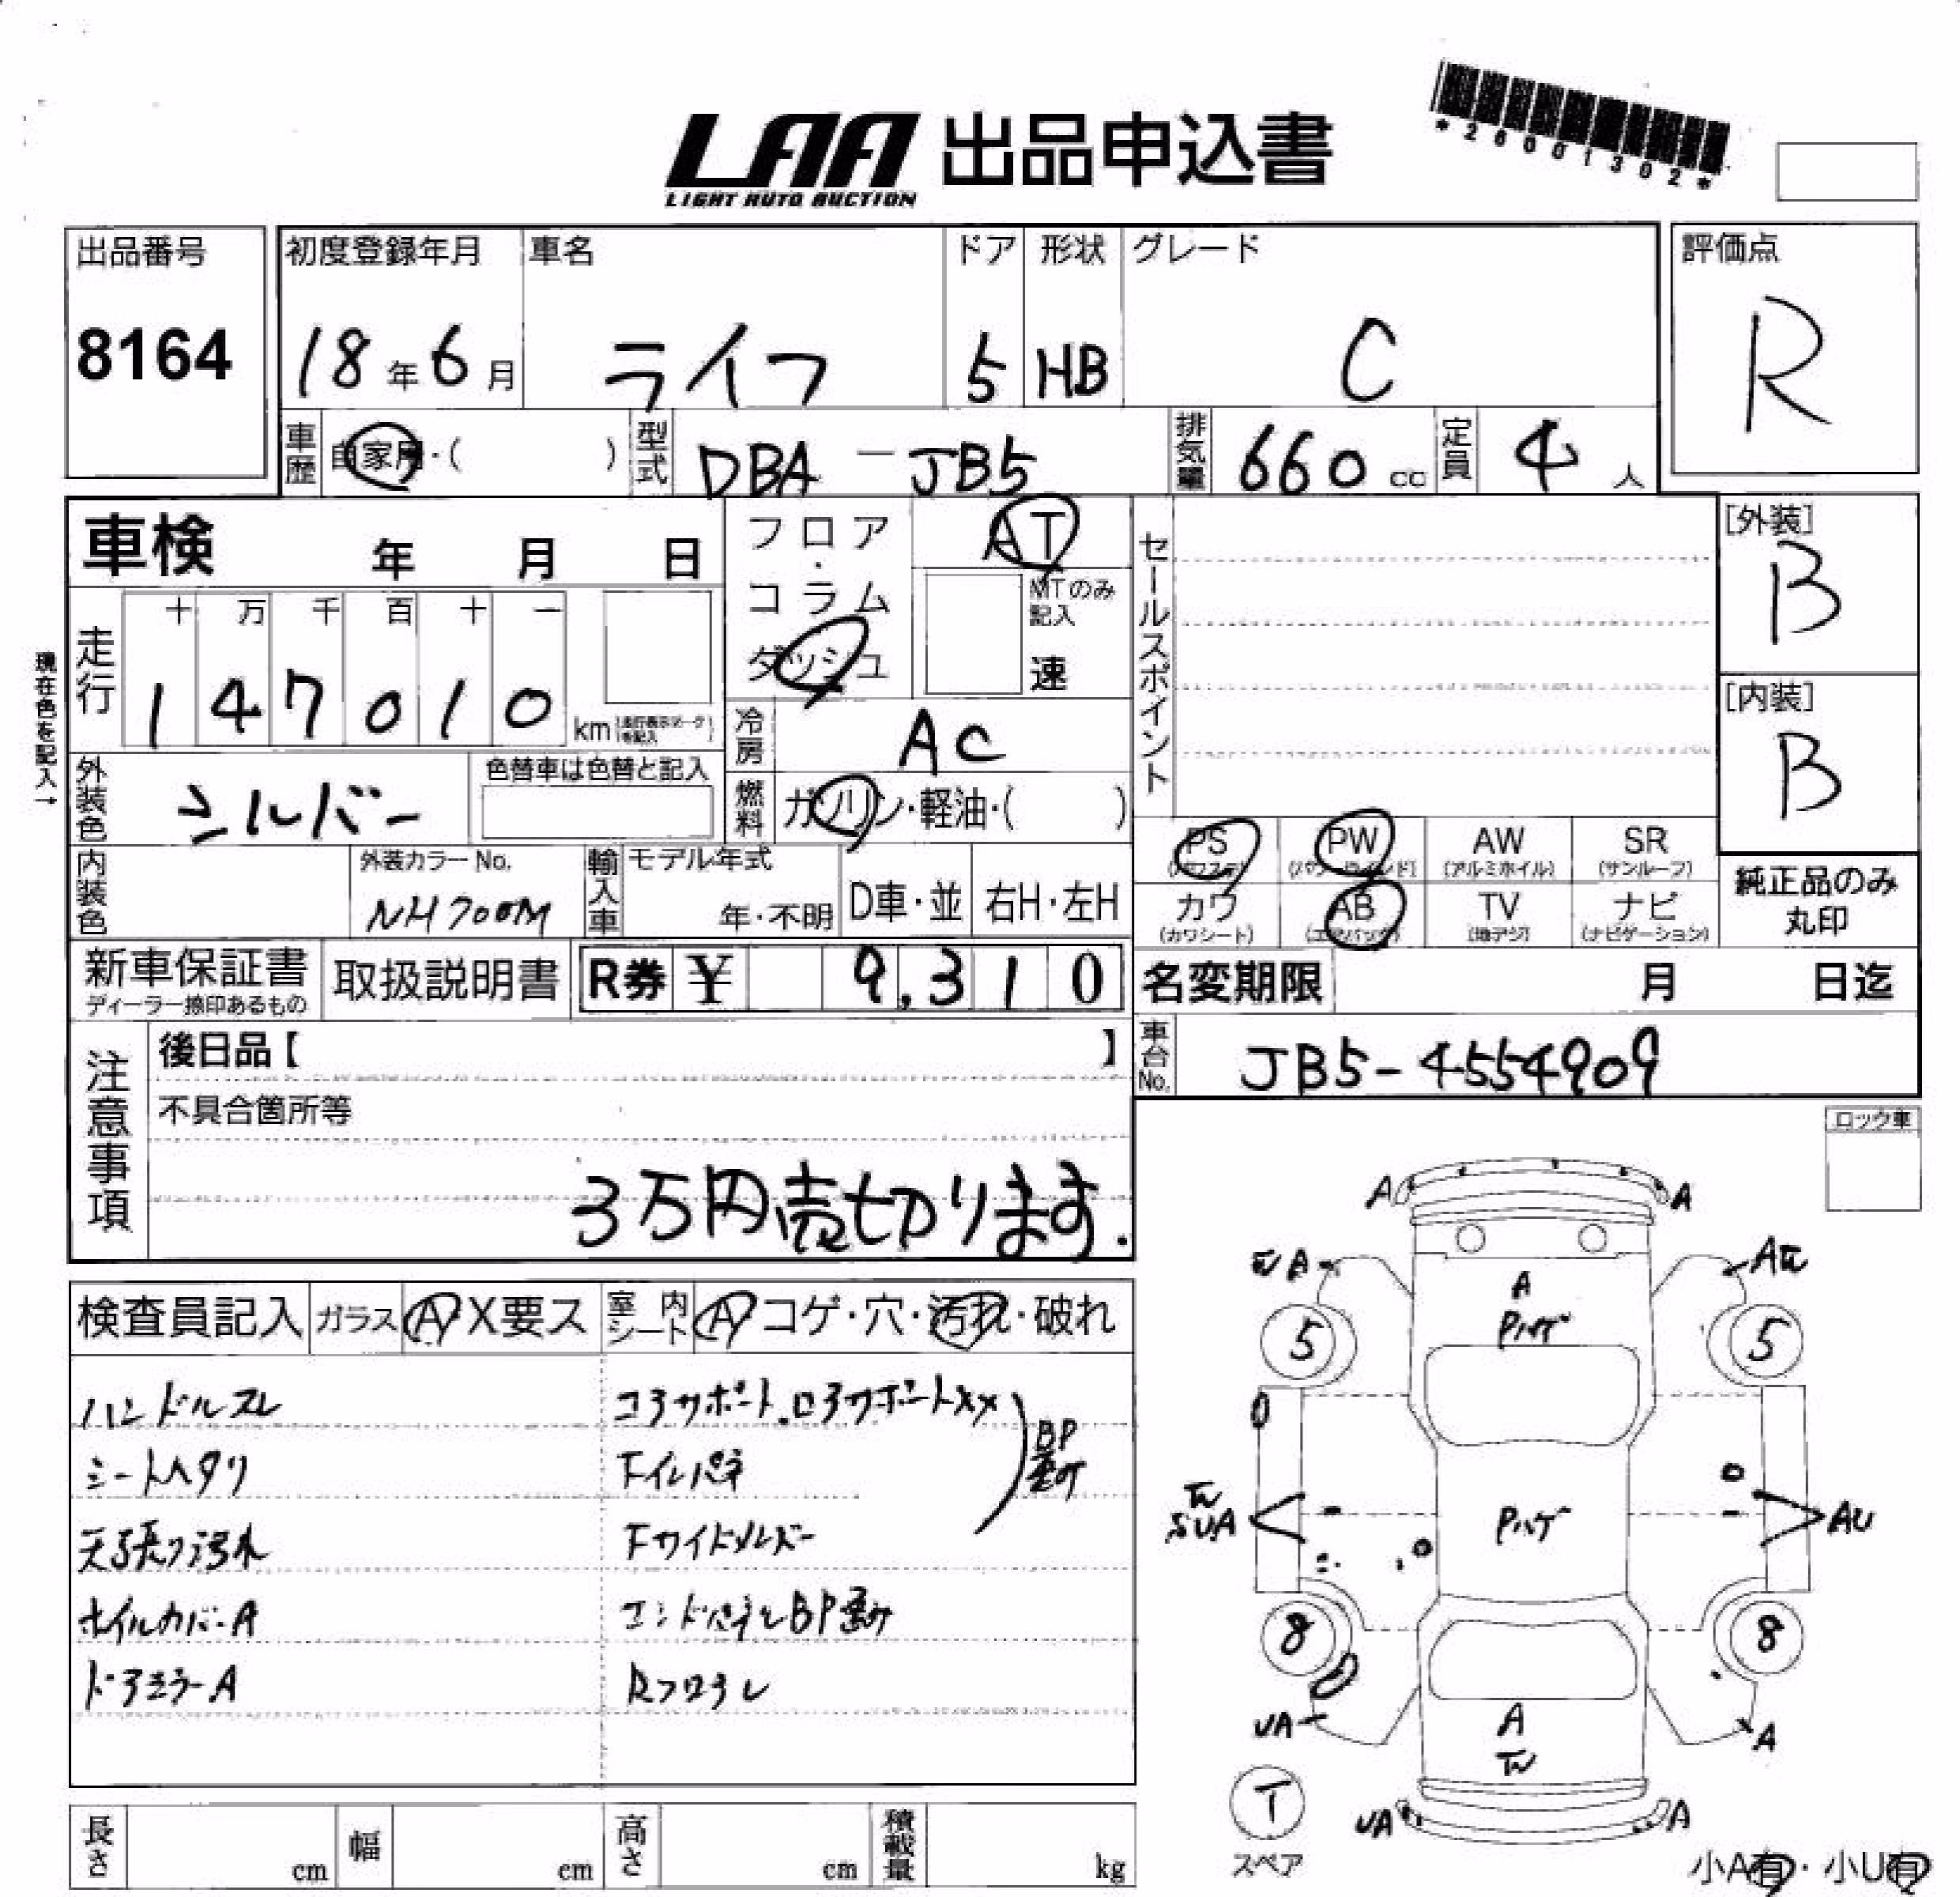 LAA 出品申込書
LIGHT AUTO AUCTION
*26001302*
出品番号
8164
初度登録年月
18年6月
車名
ライフ
ドア
5
形状
HB
グレード
C
評価点
R
車歴
自家用・( )
型式
DBA-JB5
排気量
660cc
定員
4人
車検 年 月 日
フロア・コラム
ダッシュ
AT
MTのみ
記入
速
セールスポイント
[外装]
B
[内装]
B
現在色を記入→
走行
十 万 千 百 十 一
1 4 7 0 1 0
km
冷房
AC
外装色
シルバー
色替車は色替と記入
燃料
ガソリン・軽油・( )
PS
(パワステ)
PW
AW
(アルミホイル)
SR
(サンルーフ)
カワ
(カワシート)
AB
(エアバッグ)
TV
(地デジ)
ナビ
(ナビゲーション)
純正品のみ
丸印
内装色
外装カラーNo.
NH700M
輸入車
モデル年式
年・不明
D車・並
右H・左H
新車保証書
ディーラー捺印あるもの
取扱説明書
R券 ¥ 9,310
名変期限 月 日迄
車台No.
JB5-4554909
注意事項
後日品【 】
不具合箇所等
3万円売切ります.
ロック車
検査員記入
ガラス A X要ス
室内シート A コゲ・穴・汚れ・破れ
ハンドルスレ
シートヘタリ
天張り汚れ
ホイルカバーA
ドアミラーA
コアサポート.ロアサポートXX
Fインパネ
Fサイドメンバー
エンドパネル BP
Rフロア
BP
A A
A A
A
Pハゲ
5 5
Pハゲ
AU
8 8
UA
A
A
T
スペア
UA A
小A有・小U有
長さ cm
幅 cm
高さ cm
積載量 kg